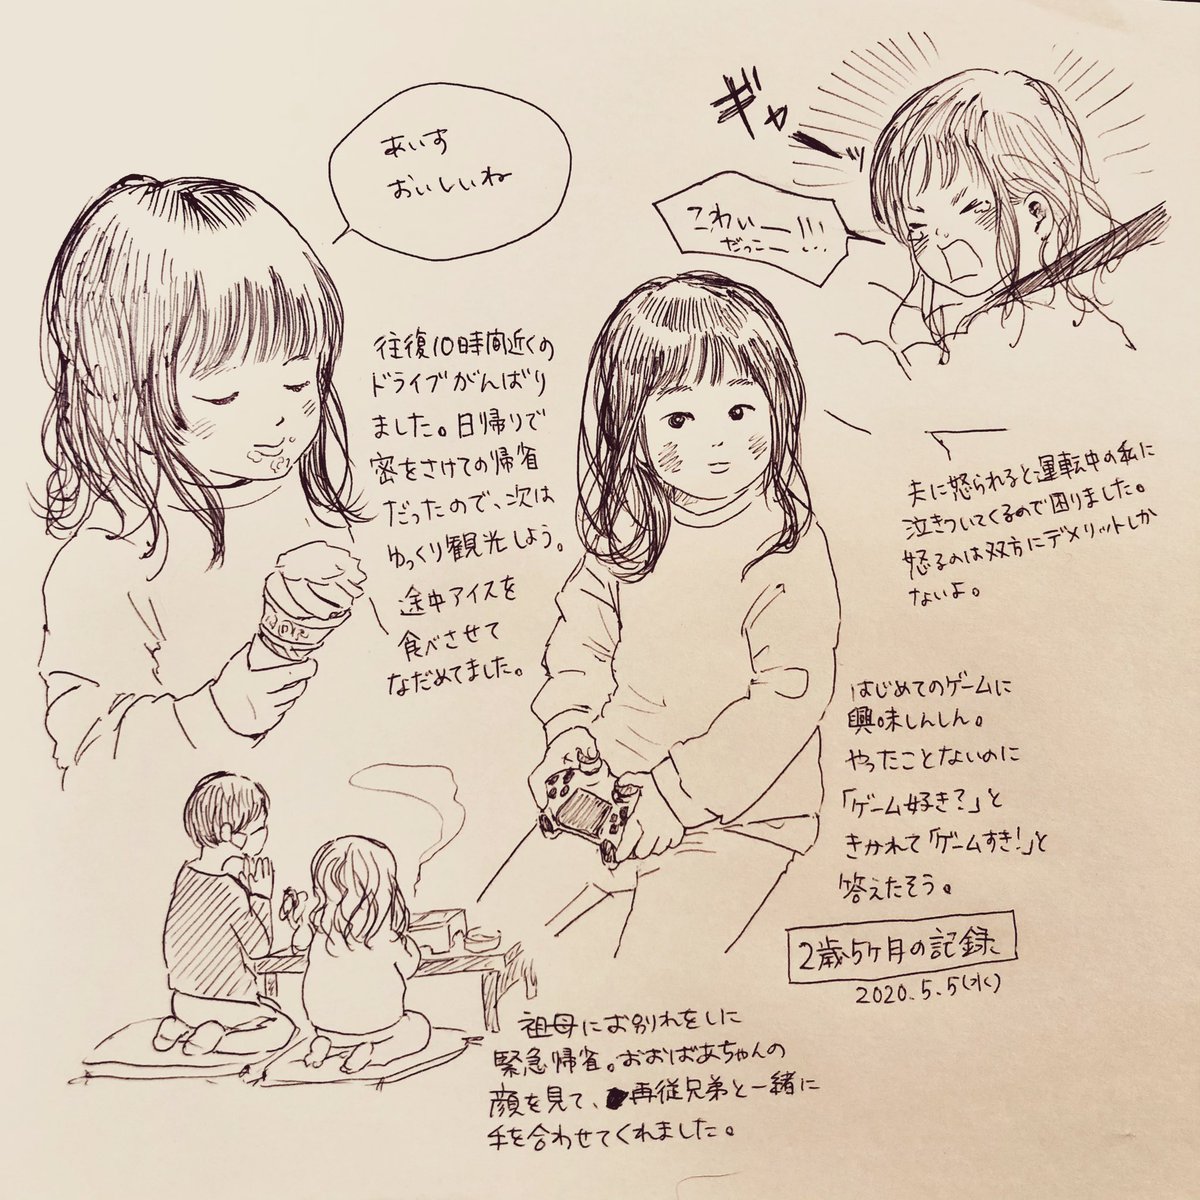 あいす
おいしいね
往復10時間近くの
ドライブがんばり
ました。日帰りで
密をさけての帰省
だったので、次は
ゆっくり観光しよう。
途中アイスを
食べさせて
なだめてました。
ギャーッ
こわいー!!!
だっこー!!!
夫に怒られると運転中の私に
泣きついてくるので困りました。
怒るのは双方にデメリットしか
ないよ。
はじめてのゲームに
興味しんしん。
やったことないのに
「ゲーム好き?」と
きかれて「ゲームすき!」と
答えたそう。
2歳5ヶ月の記録
2020.5.5(水)
祖母にお別れをしに
緊急帰省。おおばあちゃんの
顔を見て、再従兄弟と一緒に
手を合わせてくれました。